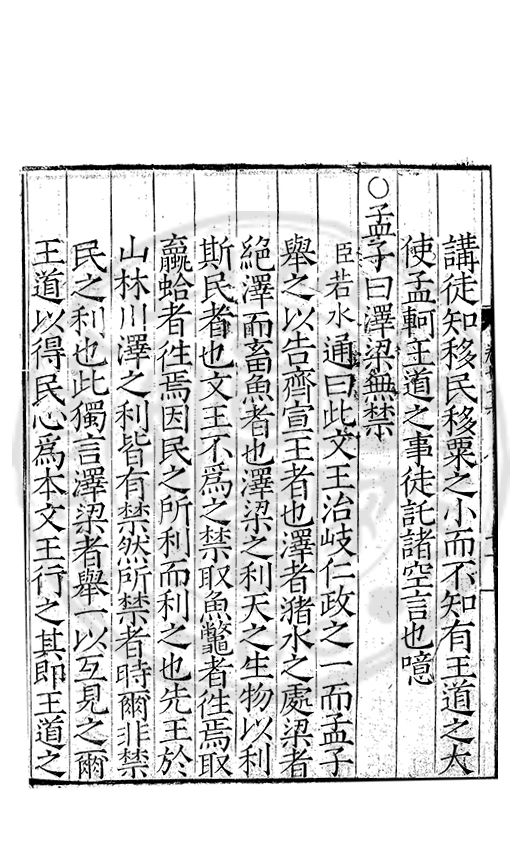 講徒知移民移粟之小而不知有王道之大
使孟軻王道之事徒託諸空言也噫
○孟子曰澤梁無禁
臣若水通曰此文王治岐仁政之一而孟子
舉之以告齊宣王者也澤者猪水之處梁者
絶澤而畜魚者也澤梁之利天之生物以利
斯民者也文王不爲之禁取魚鼈者徃焉取
蠃蛤者徃焉因民之所利而利之也先王於
山林川澤之利皆有禁然所禁者時爾非禁
民之利也此獨言澤梁者舉一以互見之爾
王道以得民心爲本文王行之其即王道之